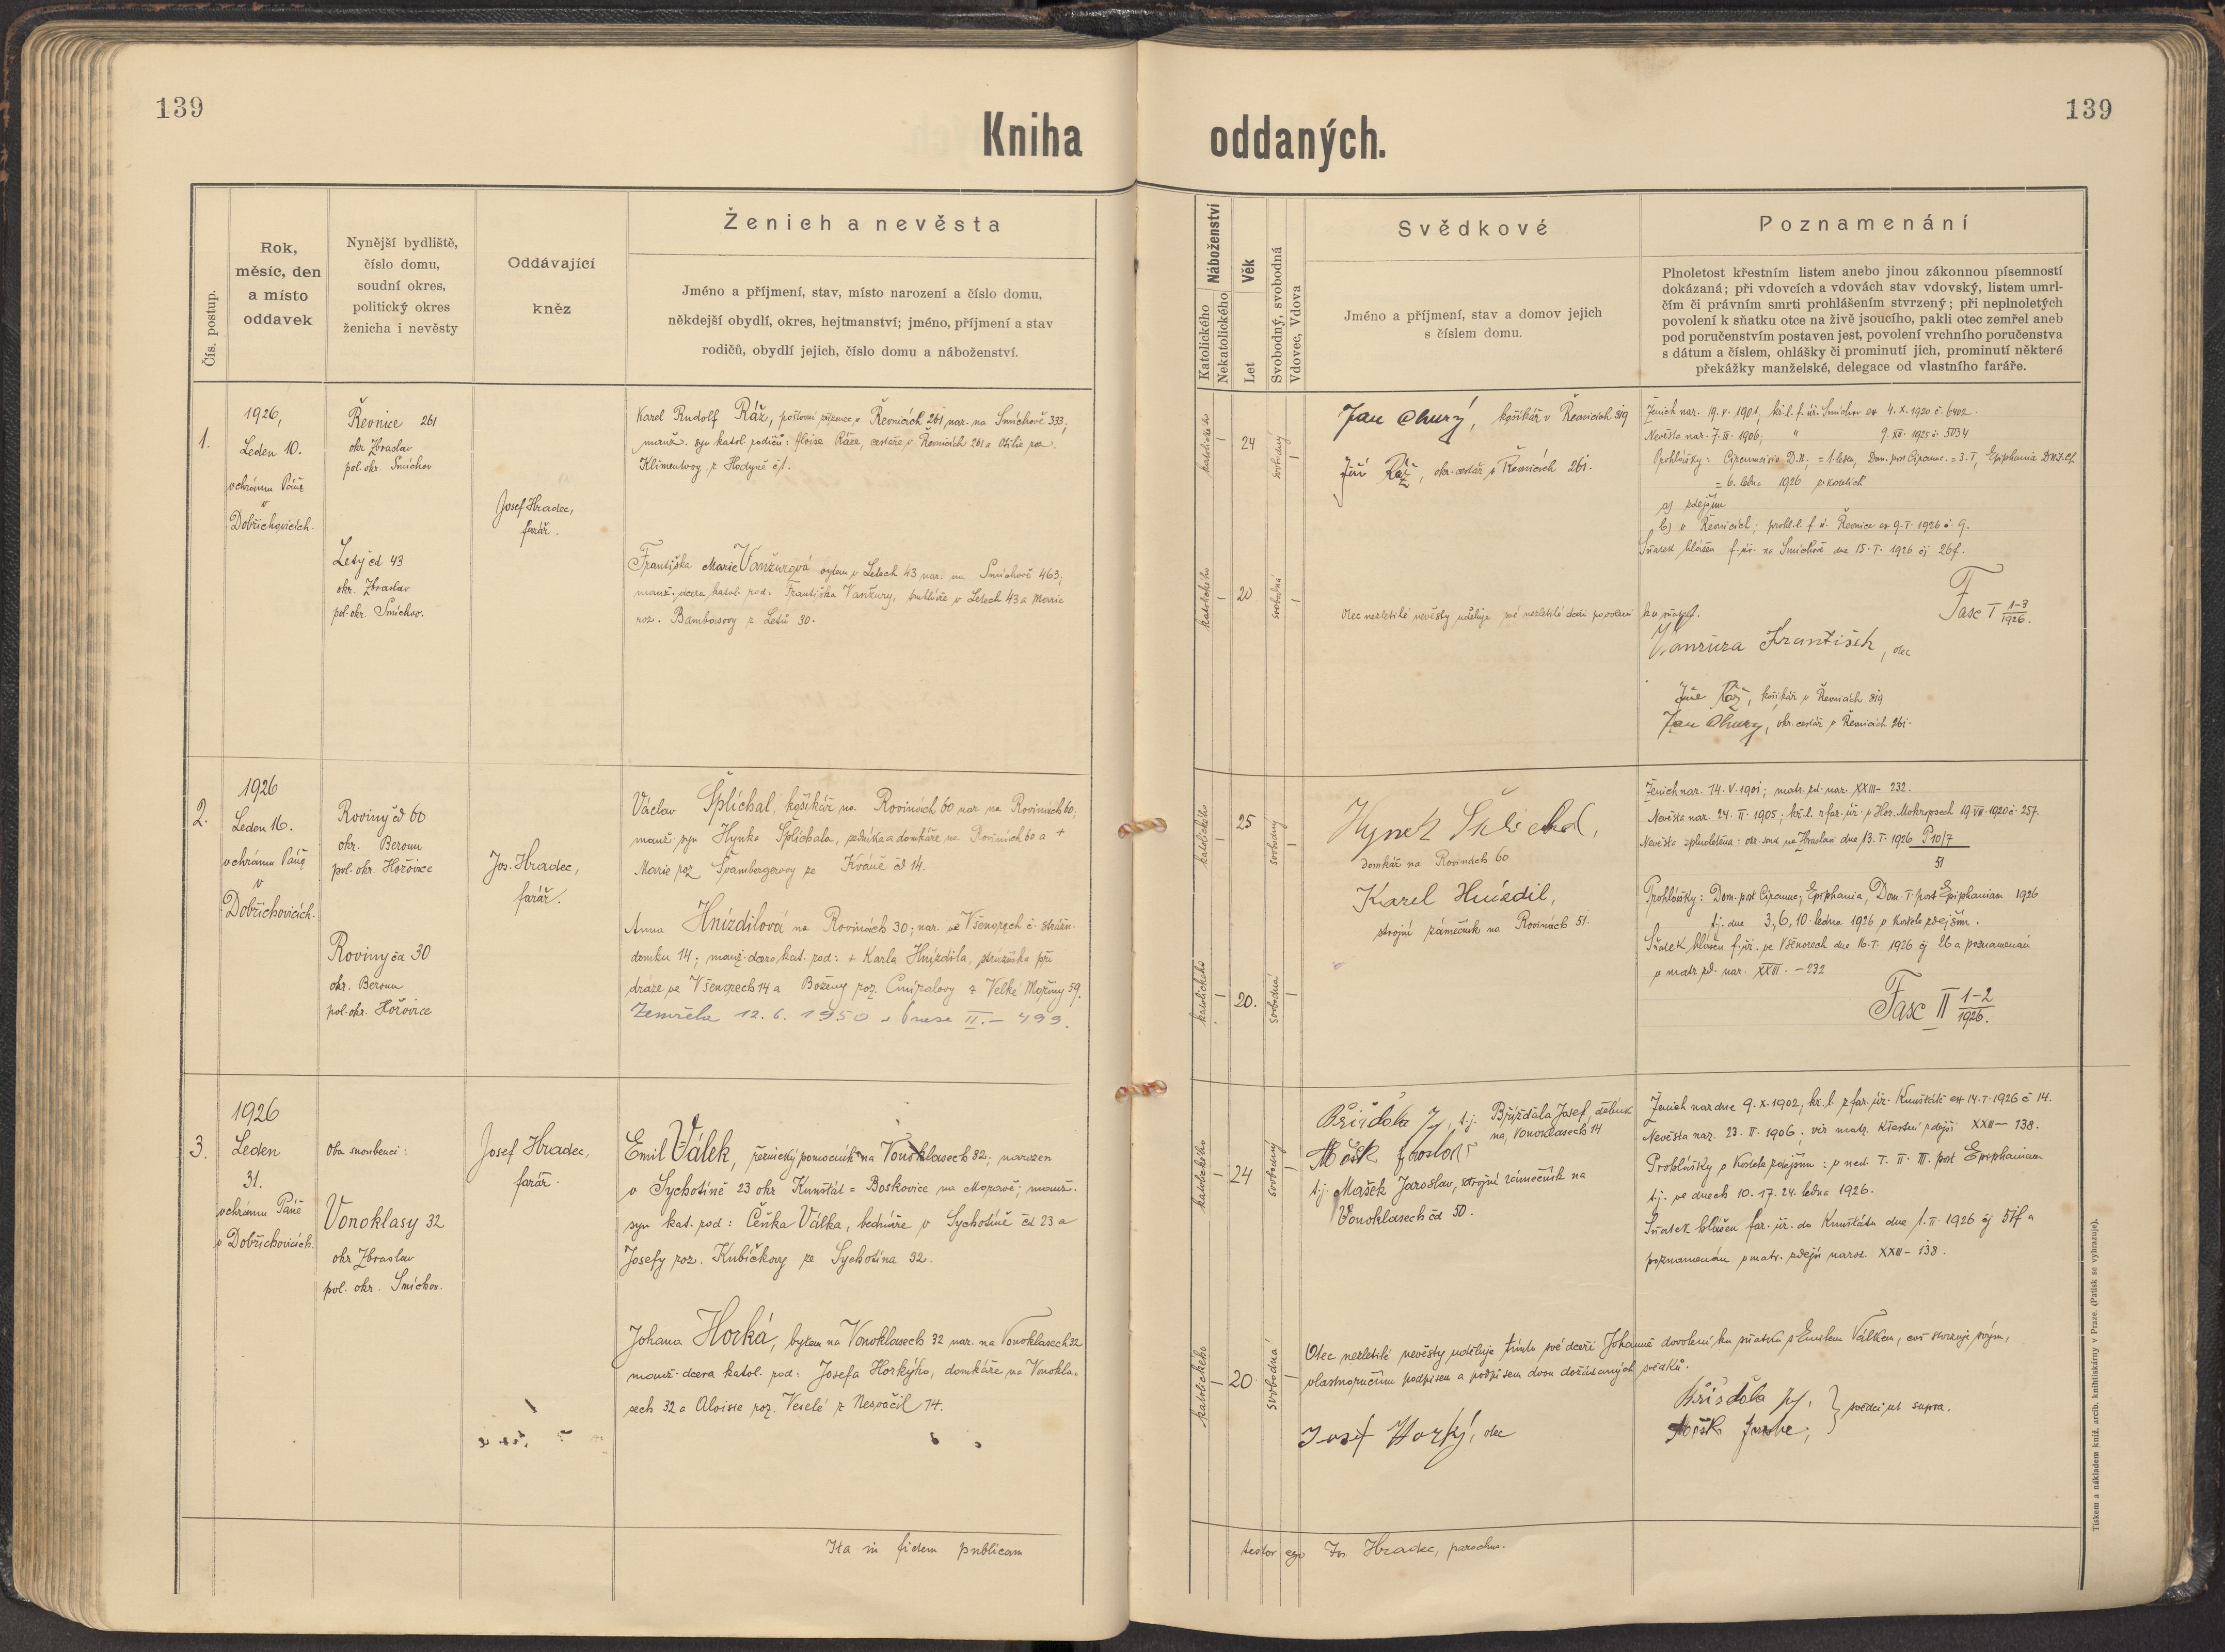 139
139
Kniha oddaných.
Čís. postup.
Rok,
měsíc, den
a místo
oddavek
Nynější bydliště,
číslo domu,
soudní okres,
politický okres
ženicha i nevěsty
Oddávající
kněz
Ženich a nevěsta
Jméno a příjmení, stav, místo narození a číslo domu,
někdejší obydlí, okres, hejtmanství; jméno, příjmení a stav
rodičů, obydlí jejich, číslo domu a náboženství.
Náboženství
Katolického
Nekatolického
Věk
Let
Svobodný, svobodná
Vdovec, Vdova
Svědkové
Jméno a příjmení, stav a domov jejich
s číslem domu.
Poznamenání
Plnoletost křestním listem anebo jinou zákonnou písemností
dokázaná; při vdovcích a vdovách stav vdovský, listem umrl-
čím či právním smrti prohlášením stvrzený; při neplnoletých
povolení k sňatku otce na živě jsoucího, pakli otec zemřel aneb
pod poručenstvím postaven jest, povolení vrchního poručenstva
s dátum a číslem, ohlášky či prominutí jich, prominutí některé
překážky manželské, delegace od vlastního faráře.
1.
1926,
Leden 10.
v chrámu Páně
v
Dobřichovicích.
Řevnice 261
okr. Zbraslav
pol. okr. Smíchov
Letý čd 43
okr. Zbraslav
pol. okr. Smíchov.
Josef Hradec,
farář.
Karel Rudolf Ráž, poštovní v Řevnicích 261 nar. na Smíchově 333;
manž. syn katol. rodičů: Aloise Ráže, cestáře v Řevnicích 261 a Otilie roz.
Klimentovy z Hodyně č 1.
Františka Marie Vanžurová bytem v Letech 43 nar. na Smíchově 463;
manž. dcera katol. rod. Františka Vanžury, v Letech 43 a Marie
roz. Bambasovy z Letů 30.
katolického
24
svobodný
katolického
20
svobodná
Jan Ouhrý, košíkář v Řevnicích 319
Jiří Ráž, okr. cestář v Řevnicích 261.
Otec nezletilé nevěsty uděluje své nezletilé dceři povolení ku sňatku.
Ženich nar. 19. V. 1901, kř. l. f. úř. Smíchov ex 4. X. 1920 č. 6402.
Nevěsta nar. 7. III. 1906; " 9. XII. 1925 č. 5034
Prohlášky: Circumcisio D.N. = 1. leden, Dom. post Circumc. = 3. I, Epiphania D.N.J.Ch.
= 6. ledna 1926 v kostelích
a) zdejším
b) v Řevnicích; prohl. l. f. ú. Řevnice ex 9. I. 1926 č. 9.
Sňatek hlášen f. úř. na Smíchově dne 15. I. 1926 čj 26f.
Fasc I 1-3/1926.
Vanžura František, otec
Jiří Ráž, košíkář v Řevnicích 319
Jan Ouhrý, okr. cestář v Řevnicích 261.
2.
1926
Leden 16.
v chrámu Páně
v
Dobřichovicích.
Roviny čd 60
okr. Beroun
pol. okr. Hořovice
Roviny čd 30
okr. Beroun
pol. okr. Hořovice
Jos. Hradec,
farář.
Václav Šplíchal, košíkář na Rovinách 60 nar. na Rovinách 60;
manž. syn Hynka Šplíchala, zedníka a domkáře na Rovinách 60 a +
Marie roz. Švambergerovy ze čd 14.
Anna Hnízdilová na Rovinách 30; nar. ve Všenorech č. strážn.
domku 14; manž. dcera kat. rod: + Karla Hnízdila, strážníka při
dráze ve Všenorech 14 a Boženy roz. Cmíralovy z Velké Mořiny 59.
Zemřela 12. 6. 1950 II. - 499.
katolického
25
svobodný
katolického
20.
svobodná
Hynek Šplíchal,
domkář na Rovinách 60
Karel Hnízdil,
strojní zámečník na Rovinách 51.
Ženich nar. 14. V. 1901; matr. zd. nar. XXIII - 232.
Nevěsta nar. 24. II. 1905; kř. l. z far. úř. v Hor. Mokropsech 19. VII. 1920 č. 257.
Nevěsta zplnoletěna: okr. soud na Zbraslavi dne 13. I. 1926 P 10/7
51
Prohlášky: Dom. post Circumc; Epiphania, Dom. I. post Epiphaniam 1926
t.j. dne 3., 6., 10. ledna 1926 v kostele zdejším.
Sňatek hlášen f. úř. ve Všenorech dne 16. I. 1926 čj 26 a poznamenán
v matr. zd. nar. XXIII. - 232
Fasc II 1-2/1926.
3.
1926
Leden
31.
v chrámu Páně
v Dobřichovicích
Oba snoubenci:
Vonoklasy 32
okr. Zbraslav
pol. okr. Smíchov.
Josef Hradec,
farář.
Emil Válek, řeznický pomocník na Vonoklasech 32; narozen
v Sychotíně 23 okr. Kunštát = Boskovice na Moravě; manž.
syn kat. rod: Čeňka Válka, bednáře v Sychotíně čd 23 a
Josefy roz. Kubíčkovy ze Sychotína 32.
Johana Horká, bytem na Vonoklasech 32 nar. na Vonoklasech 32
manž. dcera katol. rod: Josefa Horkýho, domkáře na Vonokla-
sech 32 a Aloisie roz. Veselé z Nesvačil 14.
katolického
24
svobodný
katolického
20
svobodná
Břížďala J, t.j. Břížďala Josef, dělník
na Vonoklasech 14
Mašek Jaroslav
t.j. Mašek Jaroslav, strojní zámečník na
Vonoklasech čd 50.
Ženich nar. dne 9. X. 1902; kř. l. z far. úř. Kunštát ex 14. I. 1926 č 14.
Nevěsta nar. 23. II. 1906; viz matr. křestní zdejší XXIII - 138.
Prohlášky v kostele zdejším: v ned. I. II. III. post Epiphaniam
t.j. ve dnech 10. 17. 24. ledna 1926.
Sňatek hlášen far. úř. do Kunštátu dne 1. II. 1926 čj 51f a
poznamenán v matr. zdejší naroz. XXIII - 138.
Otec nezletilé nevěsty uděluje tímto své dceři Johanně dovolení ku sňatku s Emilem Válkem, což stvrzuje svým,
vlastnoručním podpisem a podpisem dvou dožádaných svědků.
Josef Horký, otec
Břížďala J,
Mašek
svědci ut supra.
Ita in fidem publicam testor ego Jos. Hradec, parochus.
Tiskem a nákladem kníž. arcib. knihtiskárny v Praze. (Patisk se vyhrazuje).